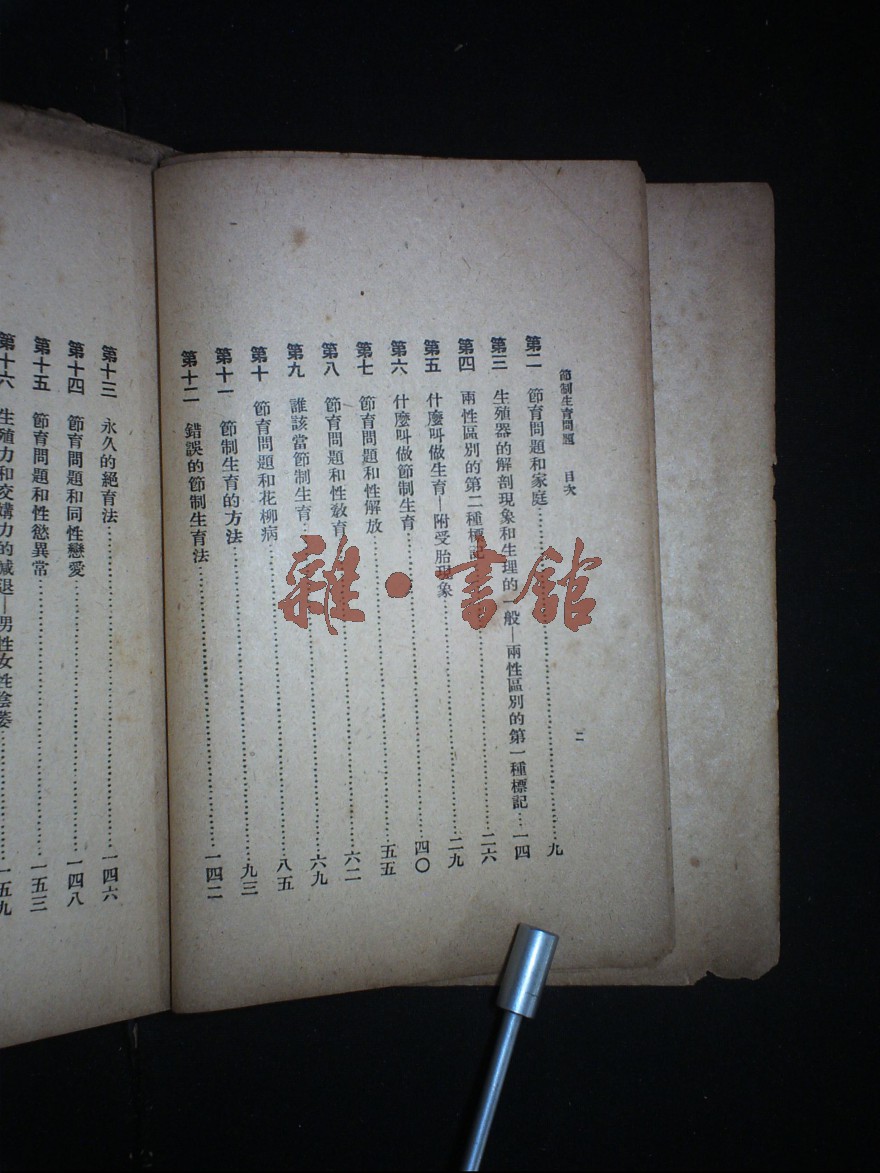 節制生育問題 目次
二
第二 節育問題和家庭……九
第三 生殖器的解剖現象和生理的一般—兩性區別的第一種標記……一四
第四 兩性區別的第二種標記……二六
第五 什麼叫做生育—附受胎現象……二九
第六 什麼叫做節制生育……四〇
第七 節育問題和性解放……五五
第八 節育問題和性教育……六二
第九 誰該當節制生育……六九
第十 節育問題和花柳病……八五
第十一 節制生育的方法……九三
第十二 錯誤的節制生育法……一四二
第十三 永久的絕育法……一四六
第十四 節育問題和同性戀愛……一四八
第十五 節育問題和性慾異常……一五三
第十六 生殖力和交媾力的減退—男性女性陰萎……一五九
雜·書館